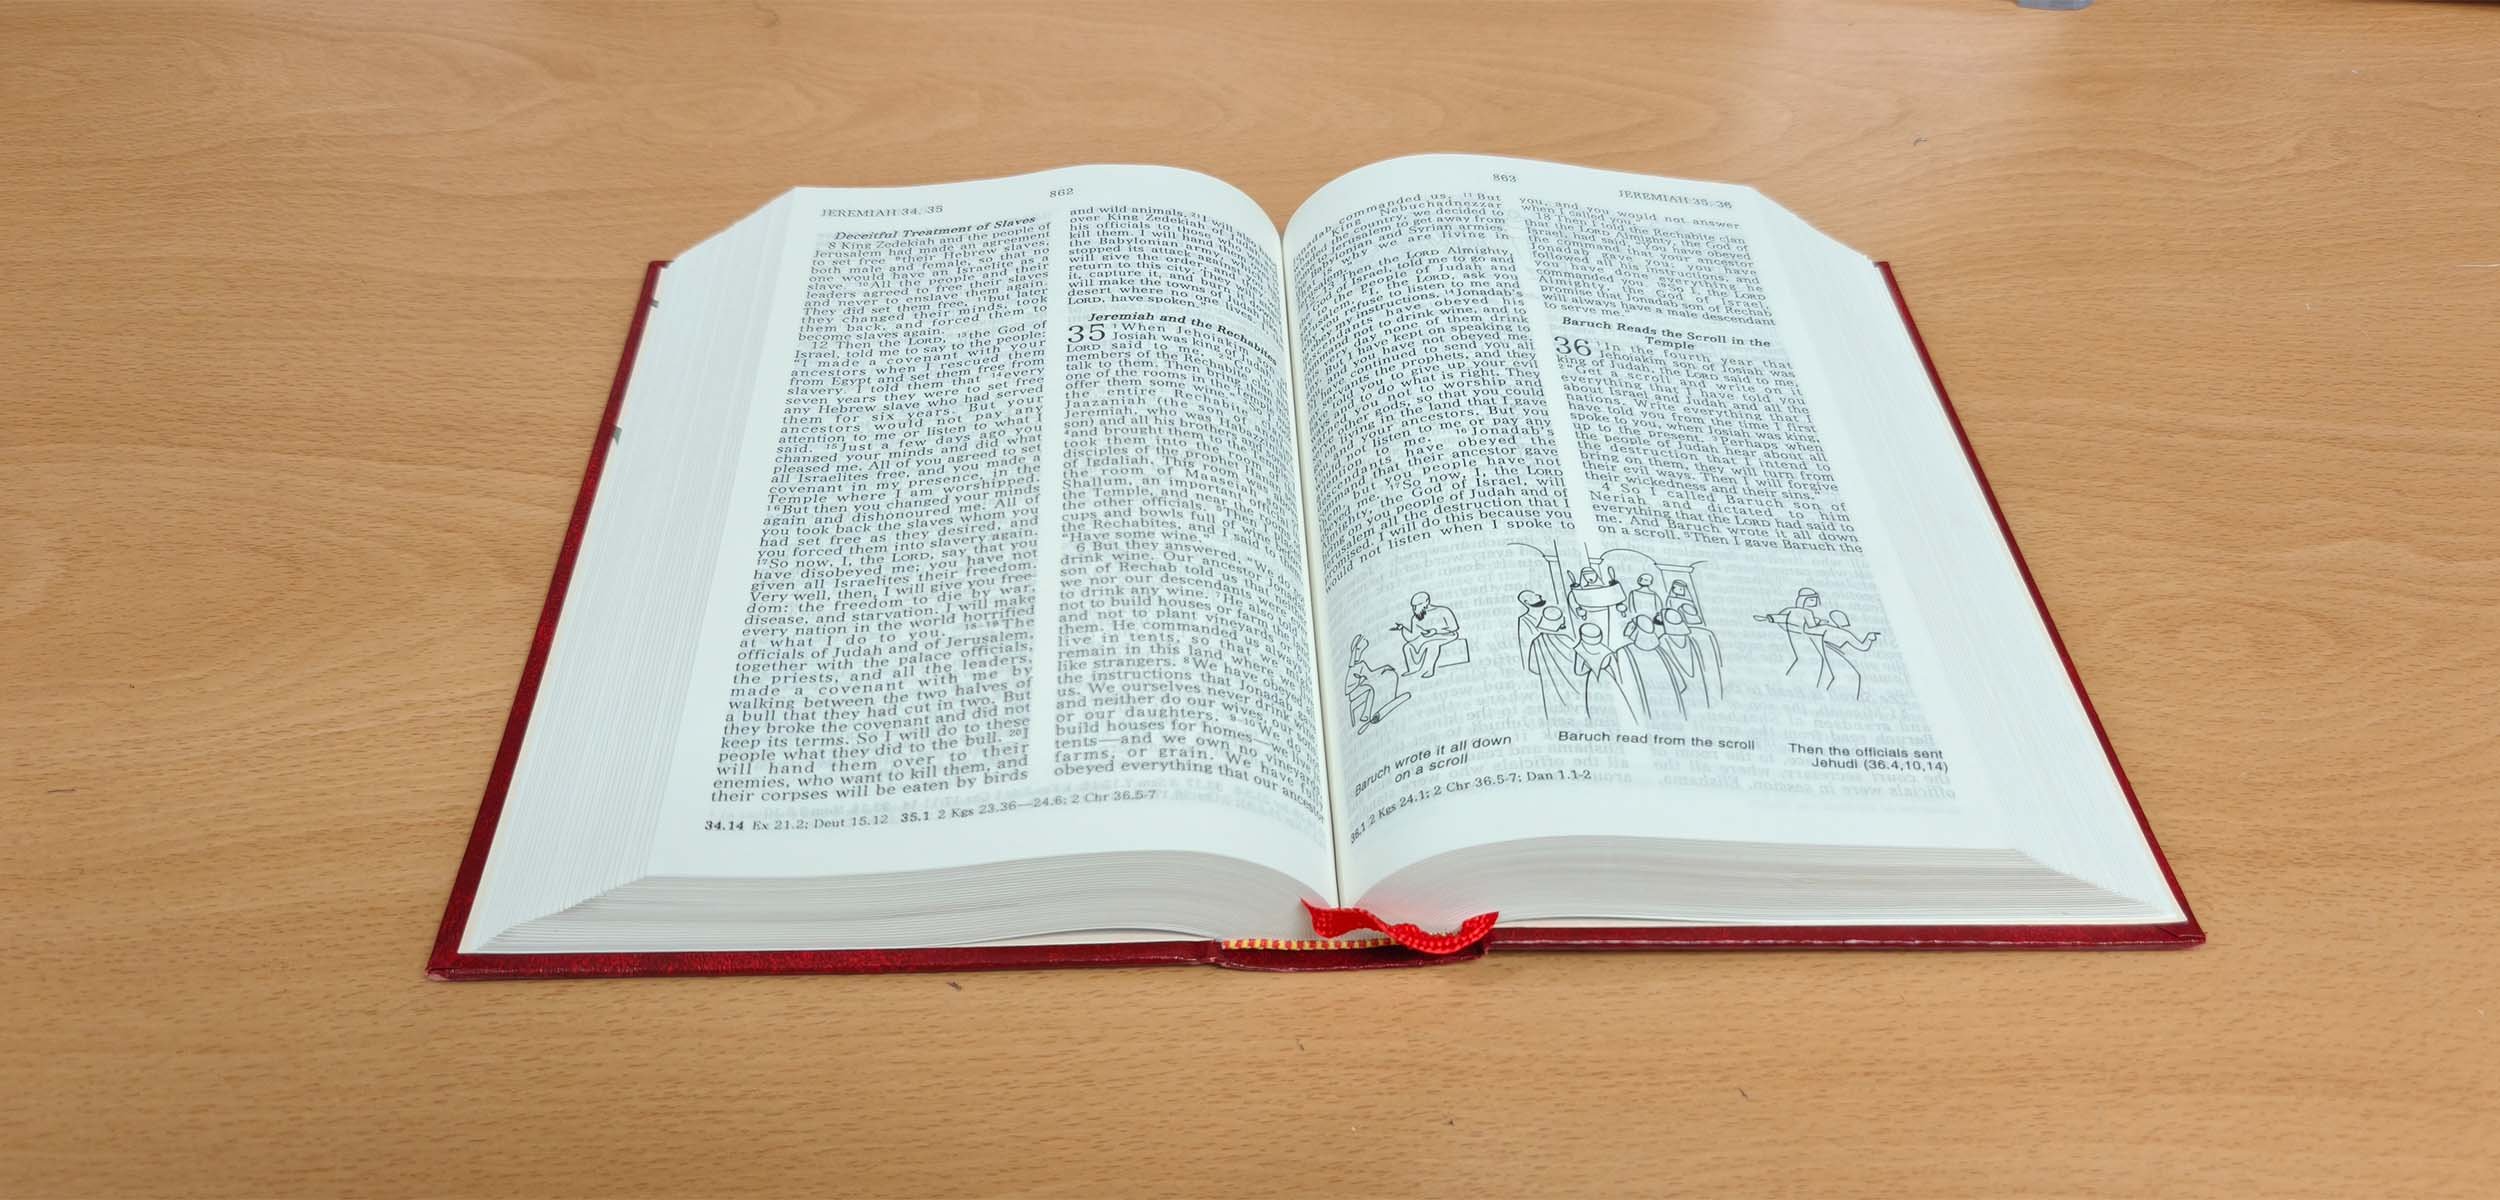 862
JEREMIAH 34, 35
Deceitful Treatment of Slaves
8 King Zedekiah and the people of
Jerusalem had made an agreement
to set free ⁹their Hebrew slaves,
both male and female, so that no
one would have an Israelite as a
slave. ¹⁰All the people and their
leaders agreed to free their slaves
and never to enslave them again.
They did set them free, ¹¹but later
they changed their minds, took
them back, and forced them to
become slaves again.
12 Then the LORD, ¹³the God of
Israel, told me to say to the people:
"I made a covenant with your
ancestors when I rescued them
from Egypt and set them free from
slavery. I told them that ¹⁴every
seven years they were to set free
any Hebrew slave who had served
them for six years. But your
ancestors would not pay any
attention to me or listen to what I
said. ¹⁵Just a few days ago you
changed your minds and did what
pleased me. All of you agreed to set
all Israelites free, and you made a
covenant in my presence, in the
Temple where I am worshipped.
¹⁶But then you changed your minds
again and dishonoured me. All of
you took back the slaves whom you
had set free as they desired, and
you forced them into slavery again.
¹⁷So now, I, the LORD, say that you
have disobeyed me; you have not
given all Israelites their freedom.
Very well, then, I will give you free-
dom: the freedom to die by war,
disease, and starvation. I will make
every nation in the world horrified
at what I do to you. ¹⁸⁻¹⁹The
officials of Judah and of Jerusalem,
together with the palace officials,
the priests, and all the leaders,
made a covenant with me by
walking between the two halves of
a bull that they had cut in two. But
they broke the covenant and did not
keep its terms. So I will do to these
people what they did to the bull. ²⁰I
will hand them over to their
enemies, who want to kill them, and
their corpses will be eaten by birds
and wild animals. ²¹I will also
over King Zedekiah of Judah
his officials to those who want
kill them. I will hand them
the Babylonian army, which
stopped its attack against
will give the order, and they
return to this city. They will
it, capture it, and burn it
will make the towns of Judah
desert where no one lives. I, the
LORD, have spoken."
Jeremiah and the Rechabites
35 ¹When Jehoiakim son
Josiah was king of
LORD said to me, ²"Go
members of the Rechabite clan
talk to them. Then bring
one of the rooms in the
offer them some wine."
the entire Rechabite
Jaazaniah (the son of
Jeremiah, who was Habazziniah's
son) and all his brothers
⁴and brought them to the
took them into the
disciples of the prophet Hanan
of Igdaliah. This room was
the room of Maaseiah son
Shallum, an important official
the Temple, and near the rooms
the other officials. ⁵Then I
cups and bowls full of wine
the Rechabites, and I said to
"Have some wine."
6 But they answered, "We do
drink wine. Our ancestor Jonadab
son of Rechab told us that neither
we nor our descendants were
to drink any wine. ⁷He also told
not to build houses or farm the
and not to plant vineyards or
them. He commanded us always
live in tents, so that we might
remain in this land where we
like strangers. ⁸We have obeyed
the instructions that Jonadab gave
us. We ourselves never drink wine,
and neither do our wives, our sons,
or our daughters. ⁹⁻¹⁰We do
build houses for homes—we live in
tents—and we own no vineyards,
farms, or grain. We have fully
obeyed everything that our ancestor
34.14 Ex 21.2; Deut 15.12 35.1 2 Kgs 23.36—24.6; 2 Chr 36.5-7
863
JEREMIAH 35, 36
commanded us. ¹¹But
King Nebuchadnezzar
the country, we decided to
Jerusalem to get away from
Babylonian and Syrian armies.
is why we are living in
Then the LORD Almighty,
God of Israel, told me to go and
the people of Judah and
"I, the LORD, ask you
you refuse to listen to me and
my instructions. ¹⁴Jonadab's
have obeyed his
not to drink wine, and to
day none of them drink
But I have kept on speaking to
and you have not obeyed me.
have continued to send you all
servants the prophets, and they
told you to give up your evil
and to do what is right. They
you not to worship and
other gods, so that you could
living in the land that I gave
and your ancestors. But you
would not listen to me or pay any
to me. ¹⁶Jonadab's
have obeyed the
command that their ancestor gave
but you people have not
me. ¹⁷So now, I, the LORD
the God of Israel, will
on you people of Judah and of
all the destruction that I
promised. I will do this because you
would not listen when I spoke to
you, and you would not answer
when I called you."
18 Then I told the Rechabite clan
that the LORD Almighty, the God of
Israel, had said, "You have obeyed
the command that your ancestor
Jonadab gave you; you have
followed all his instructions, and
you have done everything he
commanded you. ¹⁹So I, the LORD
Almighty, the God of Israel,
promise that Jonadab son of Rechab
will always have a male descendant
to serve me."
Baruch Reads the Scroll in the
Temple
36 ¹In the fourth year that
Jehoiakim son of Josiah was
king of Judah, the LORD said to me,
²"Get a scroll and write on it
everything that I have told you
about Israel and Judah and all the
nations. Write everything that I
have told you from the time I first
spoke to you, when Josiah was king,
up to the present. ³Perhaps when
the people of Judah hear about all
the destruction that I intend to
bring on them, they will turn from
their evil ways. Then I will forgive
their wickedness and their sins."
4 So I called Baruch son of
Neriah and dictated to him
everything that the LORD had said to
me. And Baruch wrote it all down
on a scroll. ⁵Then I gave Baruch the
Baruch wrote it all down
on a scroll
Baruch read from the scroll
Then the officials sent
Jehudi (36.4,10,14)
36.1 2 Kgs 24.1; 2 Chr 36.5-7; Dan 1.1-2